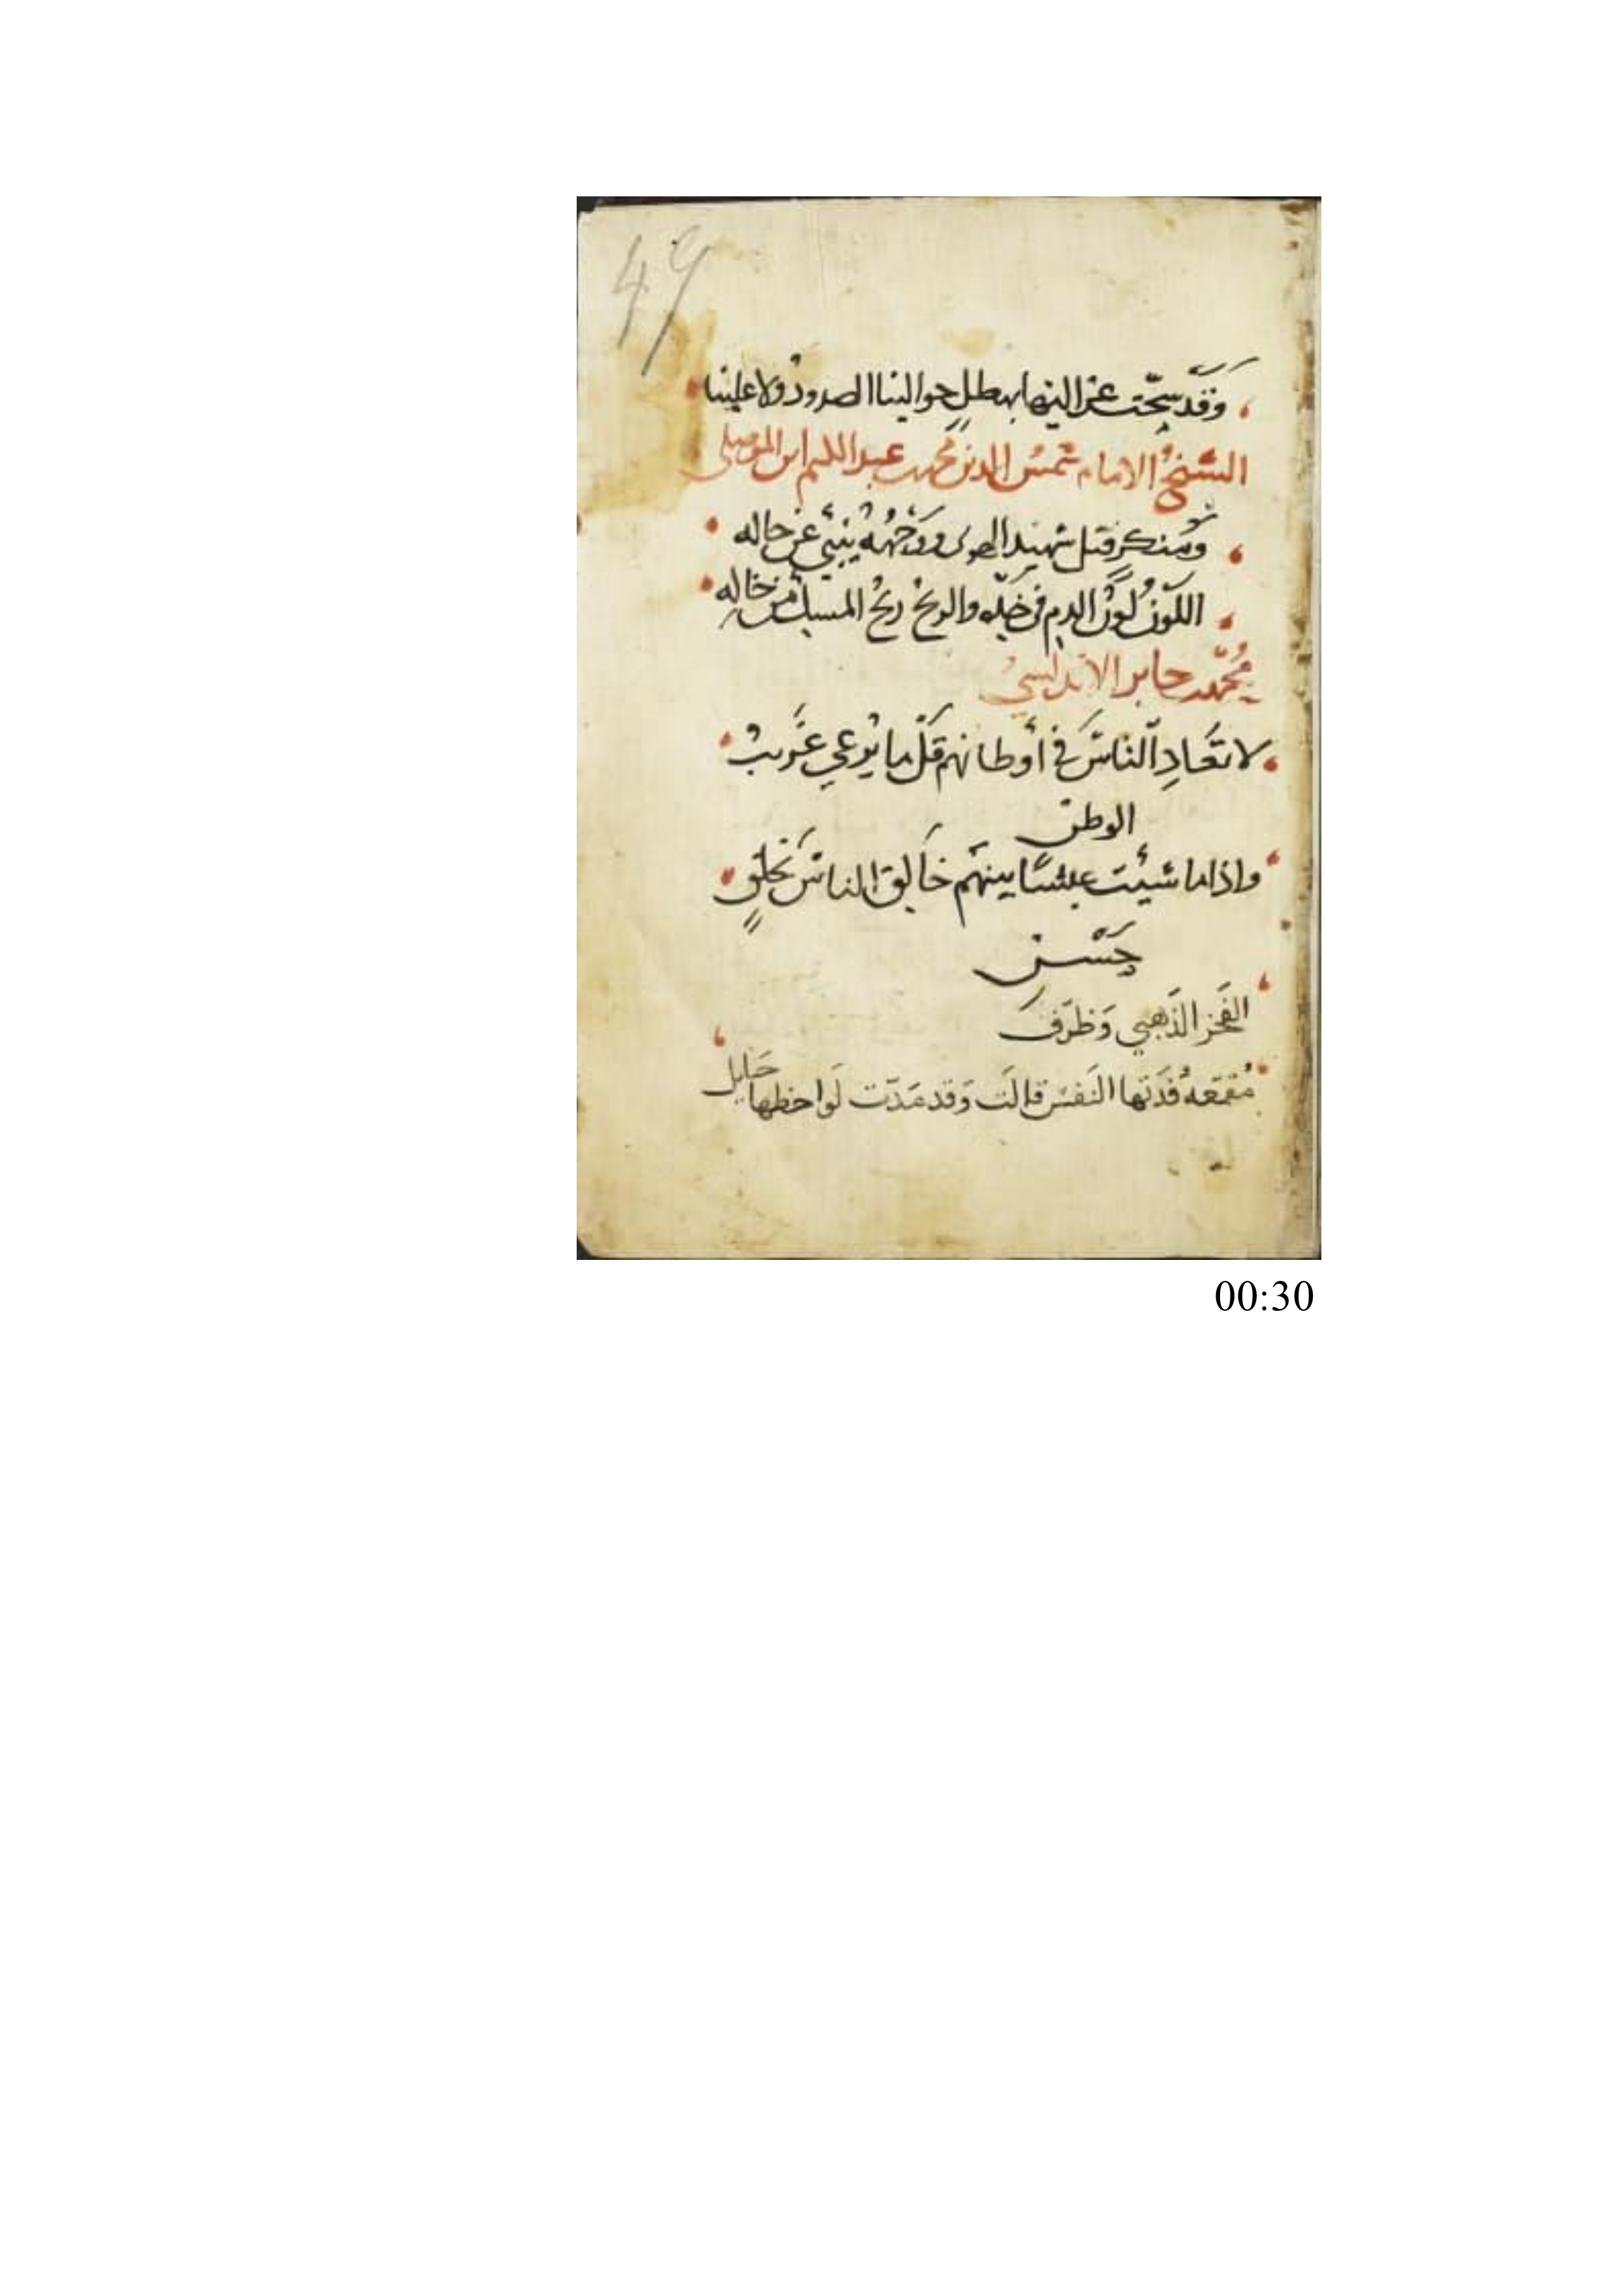 49
وَقَد سحّت عز اليها بهطلٍ حوالينا الصدود ولا علينا
الشيخ الامام شمس الدين محمد بن عبد الكريم ابن الموصلي
ومنكر قتل شهيد الهوى ووَجْهُهُ يُنبيُ عن حاله
اللَونُ لَونُ الدم في خدِّه والريحُ ريحُ المسك من خالِه
مُحمّد بن جابر الاندلسيُ
لا تعَادِ الناسَ في أوطانهم قَلّ ما يُرعى غَريبُ
الوطن
واذا ما شيئت عيشًا بينهم خالِق الناسَ بخلقٍ
حَسَنِ
الفَخر الذَهبي وَظرَف
مُقمّعهُ فَدَتها النَفسُ قالَت وَقد مَدّت لَواحظها حَبايل
00:30